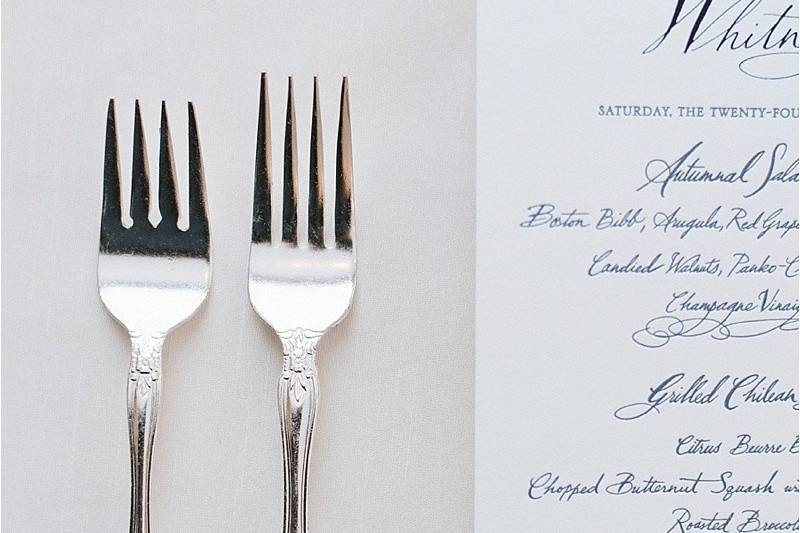 Whitn
SATURDAY, THE TWENTY-FOU
Autumnal Sala
Boston Bibb, Arugula, Red Grap
Candied Walnuts, Panko-C
Champagne Vinaig
Grilled Chilean
Citrus Beurre B
Chopped Butternut Squash w
Roasted Broccol